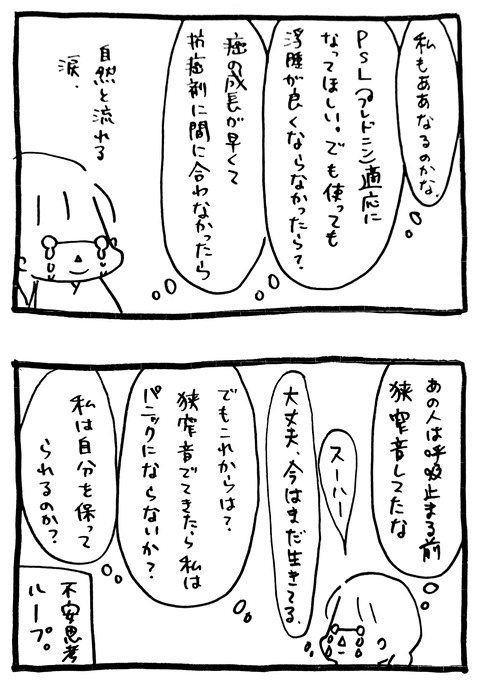 私もああなるのかな。
PSL(プレドニン)適応に
なってほしい。でも使っても
浮腫が良くならなかったら?
癌の成長が早くて
抗癌剤に間に合わなかったら
自然と流れる
涙.
あの人は呼吸止まる前
狭窄音してたな
スーハー
大丈夫、今はまだ生きてる.
でもこれからは?
狭窄音でてきたら私は
パニックにならないか?
私は自分を保って
られるのか?
不安思考
ループ。